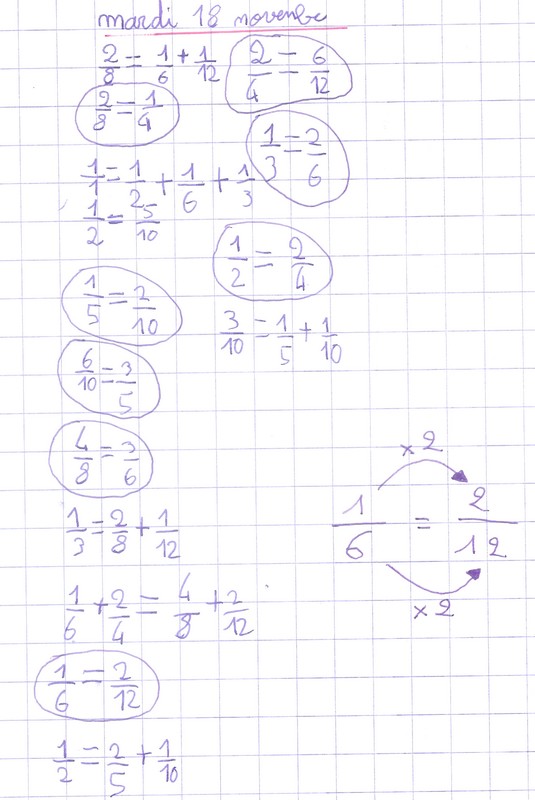 mardi 18 novembe
2/8 = 1/6 + 1/12
2/4 = 6/12
2/8 = 1/4
1/3 = 2/6
1/1 = 1/2 + 1/6 + 1/3
1/2 = 5/10
1/2 = 2/4
1/5 = 2/10
3/10 = 1/5 + 1/10
6/10 = 3/5
4/8 = 3/6
×2
1/6 = 2/12
×2
1/3 = 2/8 + 1/12
1/6 + 2/4 = 4/8 + 2/12
1/6 = 2/12
1/2 = 2/5 + 1/10